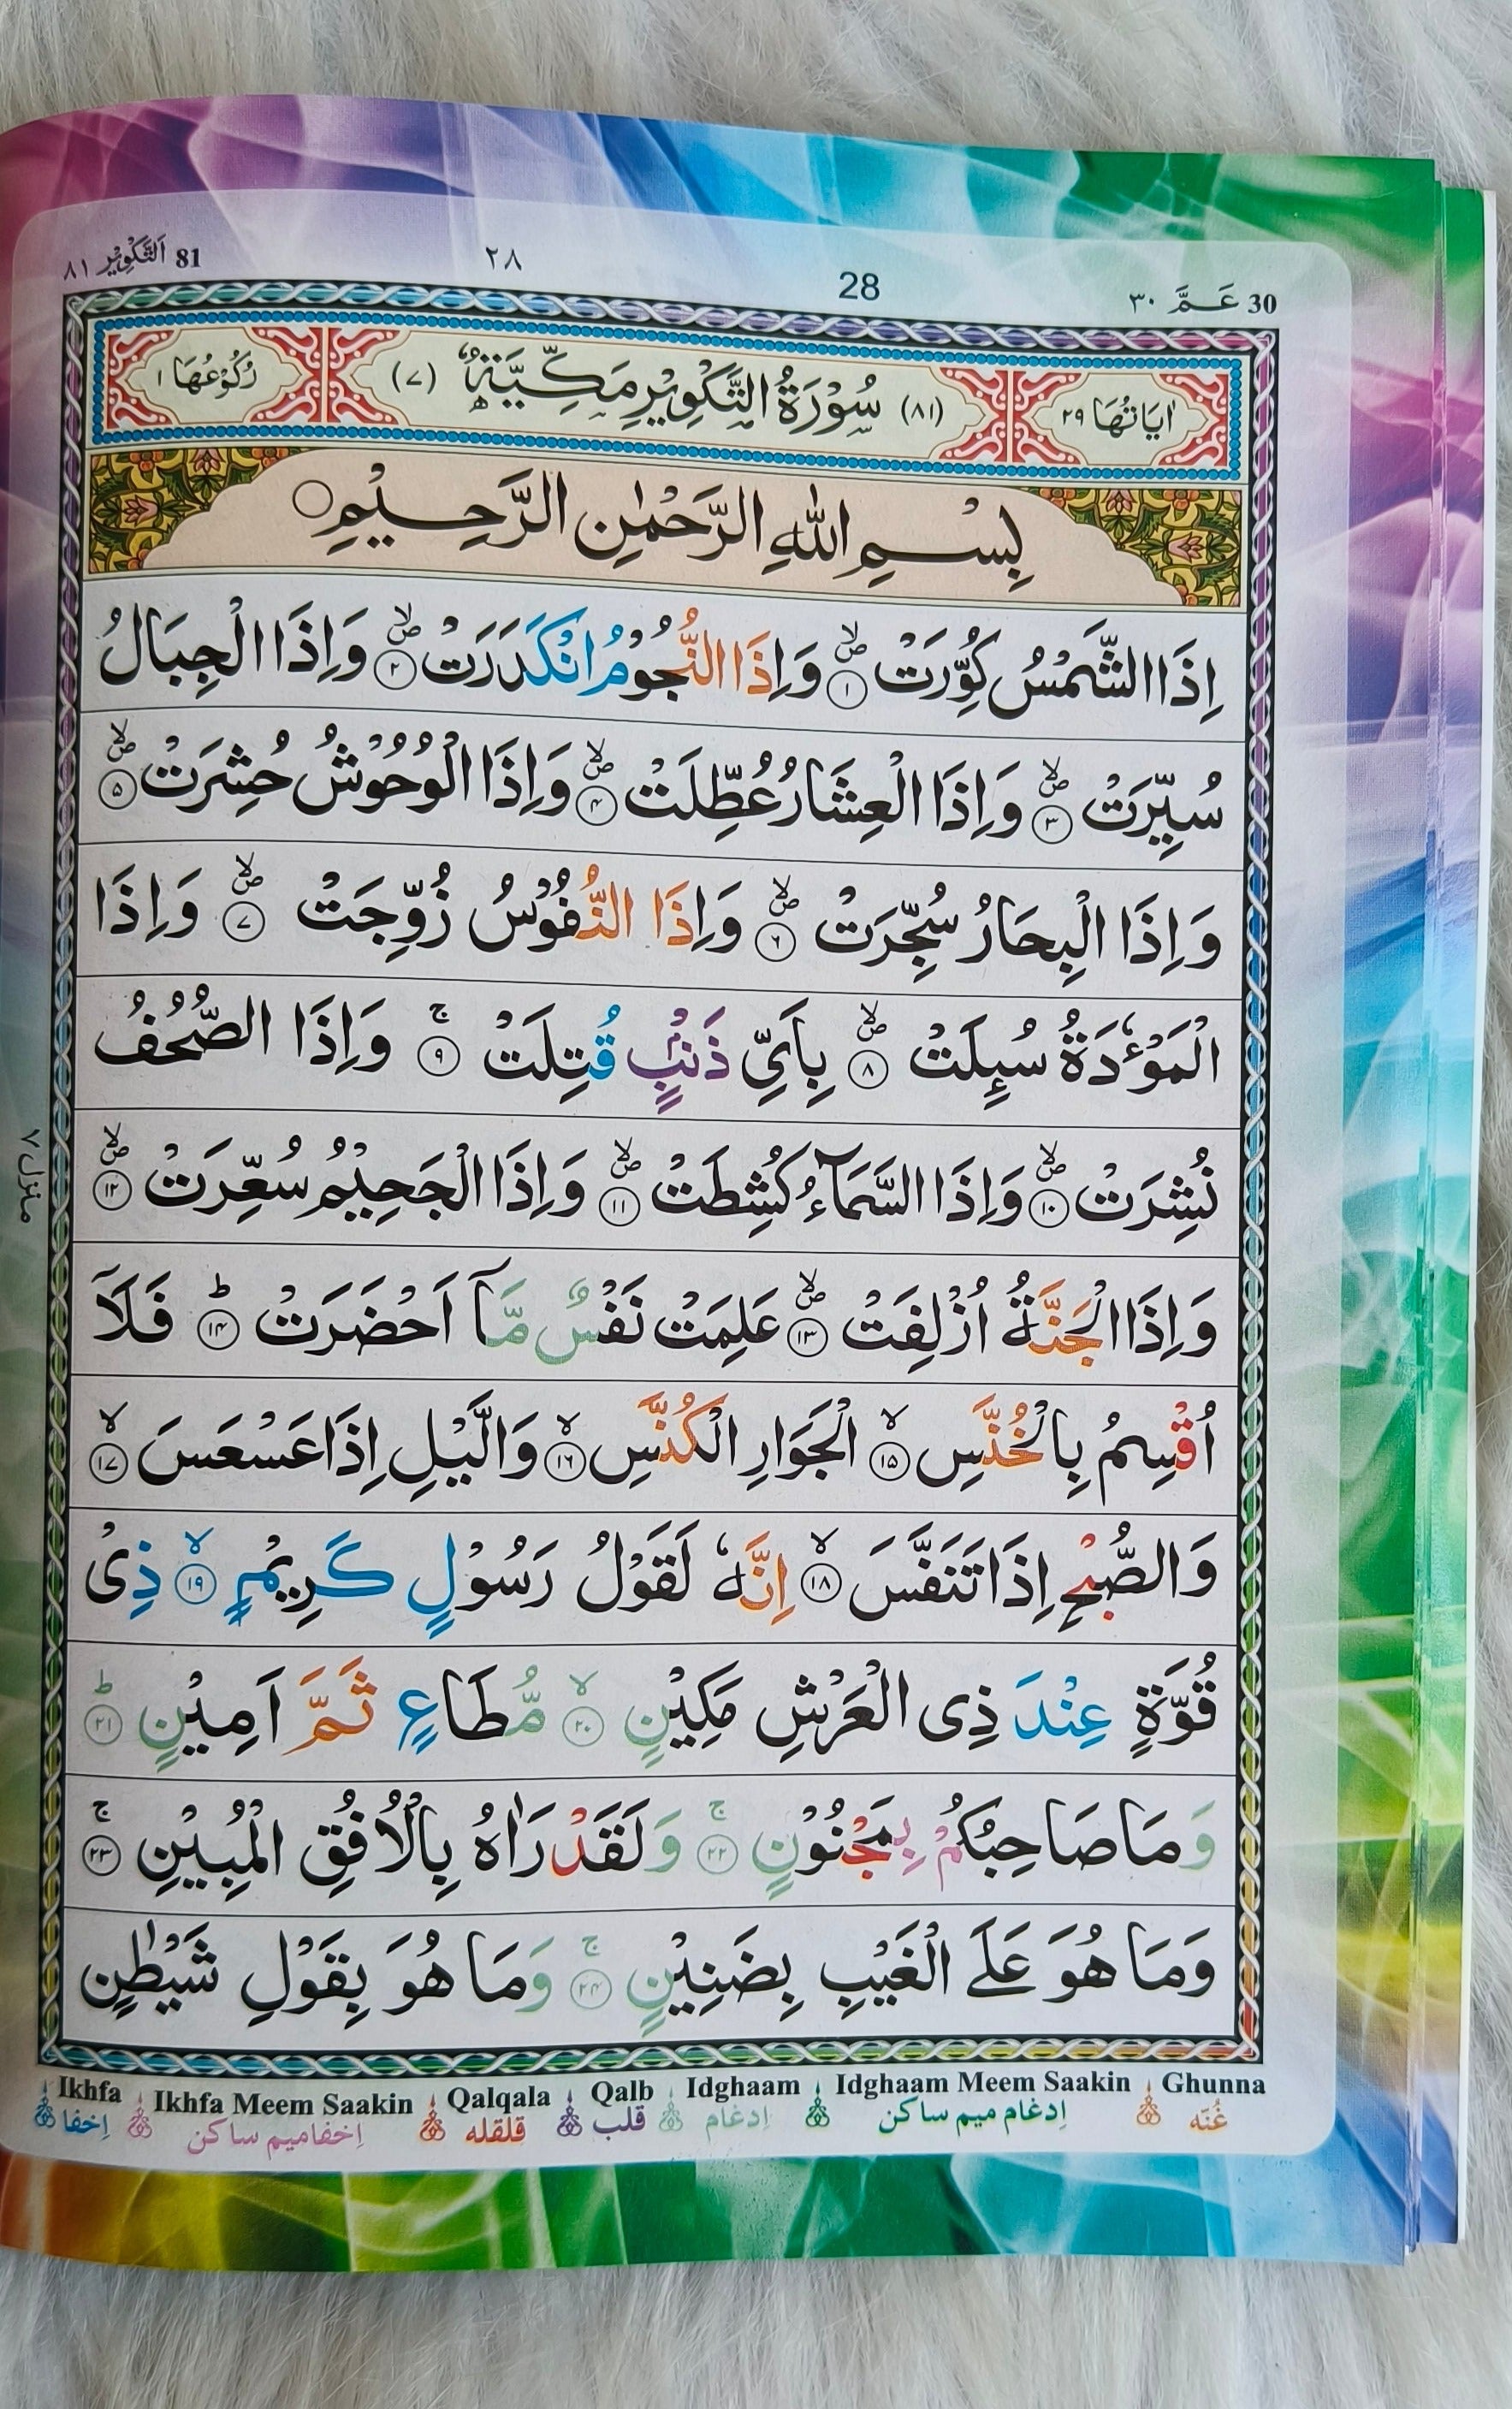 اَلتَّكْوِيْر ٨١ 81
٢٨
28
عَـمَّ ٣٠ 30
اٰيَاتُهَا ٢٩
(٨١) سُوْرَةُ التَّكْوِيْرِ مَكِّيَّةٌ (٧)
رُكُوْعُهَا ١
بِسْمِ اللّٰهِ الرَّحْمٰنِ الرَّحِيْمِ ○
اِذَا الشَّمْسُ كُوِّرَتْ ۪ۙ ١ وَاِذَا النُّجُوْمُ انْكَدَرَتْ ۪ۙ ٢ وَاِذَا الْجِبَالُ
سُيِّرَتْ ۪ۙ ٣ وَاِذَا الْعِشَارُ عُطِّلَتْ ۪ۙ ٤ وَاِذَا الْوُحُوْشُ حُشِرَتْ ۪ۙ ٥
وَاِذَا الْبِحَارُ سُجِّرَتْ ۪ۙ ٦ وَاِذَا النُّفُوْسُ زُوِّجَتْ ۪ۙ ٧ وَاِذَا
الْمَوْءٗدَةُ سُىِٕلَتْ ۪ۙ ٨ بِاَيِّ ذَنْۢبٍ قُتِلَتْ ۚ ٩ وَاِذَا الصُّحُفُ
نُشِرَتْ ۪ۙ ١٠ وَاِذَا السَّمَآءُ كُشِطَتْ ۪ۙ ١١ وَاِذَا الْجَحِيْمُ سُعِّرَتْ ۪ۙ ١٢
وَاِذَا الْجَنَّةُ اُزْلِفَتْ ۪ۙ ١٣ عَلِمَتْ نَفْسٌ مَّاۤ اَحْضَرَتْ ؕ ١٤ فَلَاۤ
اُقْسِمُ بِالْخُنَّسِ ۙ ١٥ الْجَوَارِ الْكُنَّسِ ۙ ١٦ وَالَّيْلِ اِذَا عَسْعَسَ ۙ ١٧
وَالصُّبْحِ اِذَا تَنَفَّسَ ۙ ١٨ اِنَّهٗ لَقَوْلُ رَسُوْلٍ كَرِيْمٍ ۙ ١٩ ذِىْ
قُوَّةٍ عِنْدَ ذِى الْعَرْشِ مَكِيْنٍ ۙ ٢٠ مُّطَاعٍ ثَمَّ اَمِيْنٍ ؕ ٢١
وَمَا صَاحِبُكُمْ بِمَجْنُوْنٍ ۚ ٢٢ وَلَقَدْ رَاٰهُ بِالْاُفُقِ الْمُبِيْنِ ۚ ٢٣
وَمَا هُوَ عَلَى الْغَيْبِ بِضَنِيْنٍ ۚ ٢٤ وَمَا هُوَ بِقَوْلِ شَيْطٰنٍ
منزل ٧
Ikhfa Ikhfa Meem Saakin Qalqala Qalb Idghaam Idghaam Meem Saakin Ghunna
اِخفا اِخفامیم ساکن قلقله قلب اِدغام اِدغام میم ساکن غُنّه